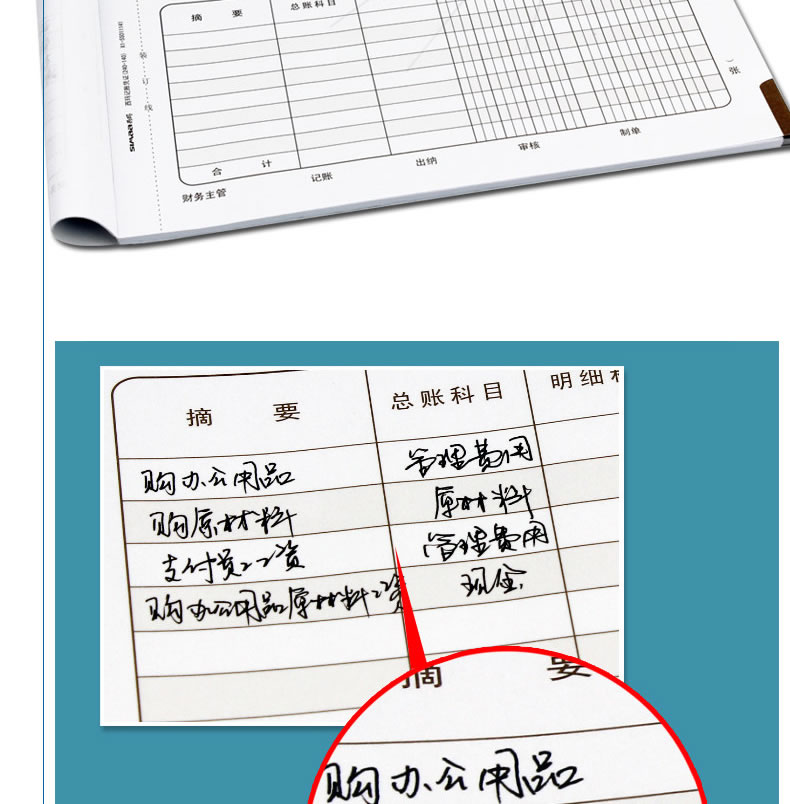 摘 要 总账科目
合 计
财务主管 记账 出纳 审核 制单
张
装订线
SIMAA西玛 西玛记账凭证(240×140)
摘 要 总账科目 明细
购办公用品 管理费用
购原材料 原材料
支付员工工资 管理费用
购办公用品原材料工资 现金
摘 要
购办公用品